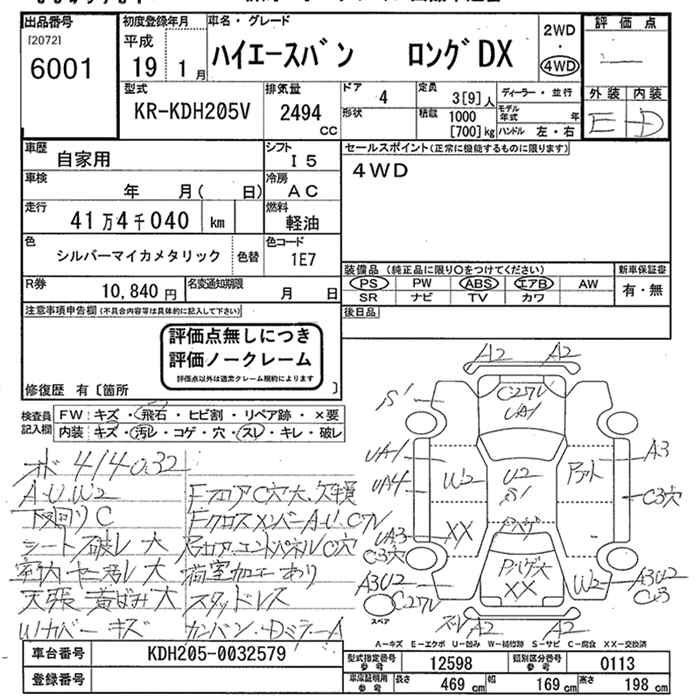 出品番号
[2072]
6001
初度登録年月
平成
19 1月
車名・グレード
ハイエースバン ロングDX
2WD
・
4WD
評価点
外装 内装
E D
型式
KR-KDH205V
排気量
2494
CC
ドア
4
形状
定員
3[9]人
積載
1000
[700]kg
ディーラー・並行
モデル年式 年
ハンドル 左・右
車歴
自家用
シフト
I 5
車検
年 月( 日)
冷房
A C
走行
41万4千040 km
燃料
軽油
色
シルバーマイカメタリック
色替
色コード
1E7
R券
10,840円
名変通知期限
月 日
セールスポイント(正常に機能するものに限ります)
4WD
装備品(純正品に限り○をつけてください)
PS PW ABS エアB AW
SR ナビ TV カワ
新車保証書
有・無
後日品
注意事項申告欄(不具合内容等は具体的に記入して下さい)
評価点無しにつき
評価ノークレーム
評価点以外は通常クレーム規約によります
修復歴 有〔箇所 〕
検査員
記入欄
FW:キズ・飛石・ヒビ割・リペア跡・×要
内装:キズ・汚レ・コゲ・穴・スレ・キレ・破レ
メボ 414032
A.U.W2
下回り C
シート破レ 大
室内ヤニ汚レ 大
天張 黄ばみ大
Wカバーキズ
FフロアC穴大.欠損
FクロスメンバーA.U.Cクサレ
荷室加工あり
スタッドレス
カンバン・DミラーA
A2 A2
UA1
S'
UA1
UA4
UA3
C3穴
W2
XX
U2
S'
A3
C3穴
XX
W2
A3U2
A3U2
C3
A2 A2
スペア
A-キズ E-エクボ U-凹み W-補修跡 S-サビ C-腐食 XX-交換済
車台番号
KDH205-0032579
登録番号
型式指定番号
参考
12598
類別区分番号
参考
0113
車庫証明用
参考
長さ 469cm 幅 169cm 高さ 198cm